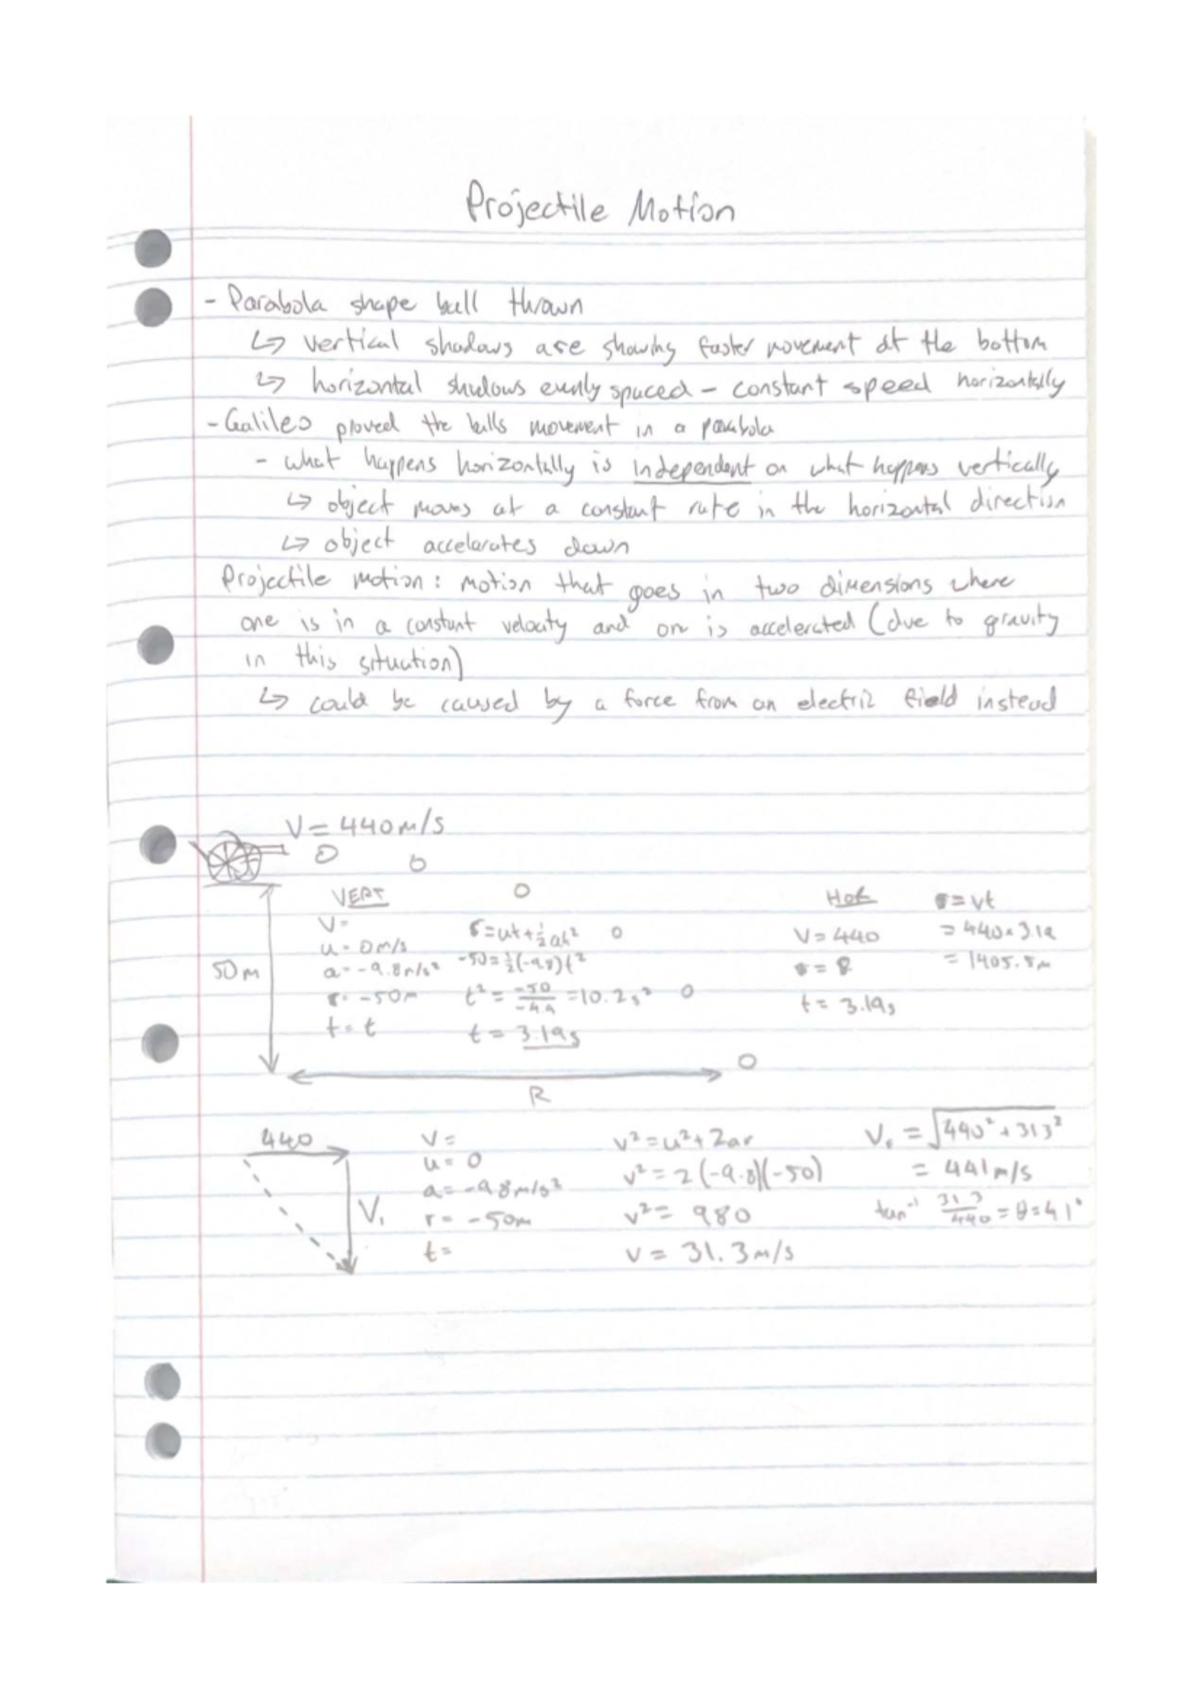 Projectile Motion
- Parabola shape ball thrown
↳ vertical shadows are showing faster movement at the bottom
↳ horizontal shadows evenly spaced - constant speed horizontally
- Galileo proved the balls movement in a parabola
- what happens horizontally is independent on what happens vertically
↳ object moves at a constant rate in the horizontal direction
↳ object accelerates down
Projectile motion: motion that goes in two dimensions where
one is in a constant velocity and on is accelerated (due to gravity
in this situation)
↳ could be caused by a force from an electric field instead
V = 440 m/s
50m
VERT
V=
u = 0m/s
a = -9.8m/s²
r = -50m
t = t
r = ut + ½at²
-50 = ½(-9.8)t²
t² = -50/-4.9 = 10.2s²
t = 3.19s
Hor
V = 440
t = 3.19s
= vt
= 440 × 3.19
= 1405.8m
R
440
V₁
V=
u = 0
a = -9.8m/s²
r = -50m
t =
v² = u² + 2ar
v² = 2(-9.8)(-50)
v² = 980
v = 31.3m/s
= √440² + 313²
= 441m/s
tan⁻¹ 31.3/440 = θ = 41°